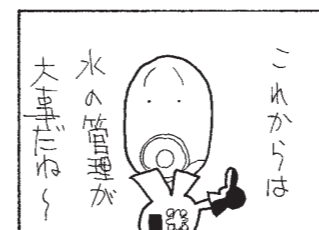 これからは
水の管理が
大事だね〜